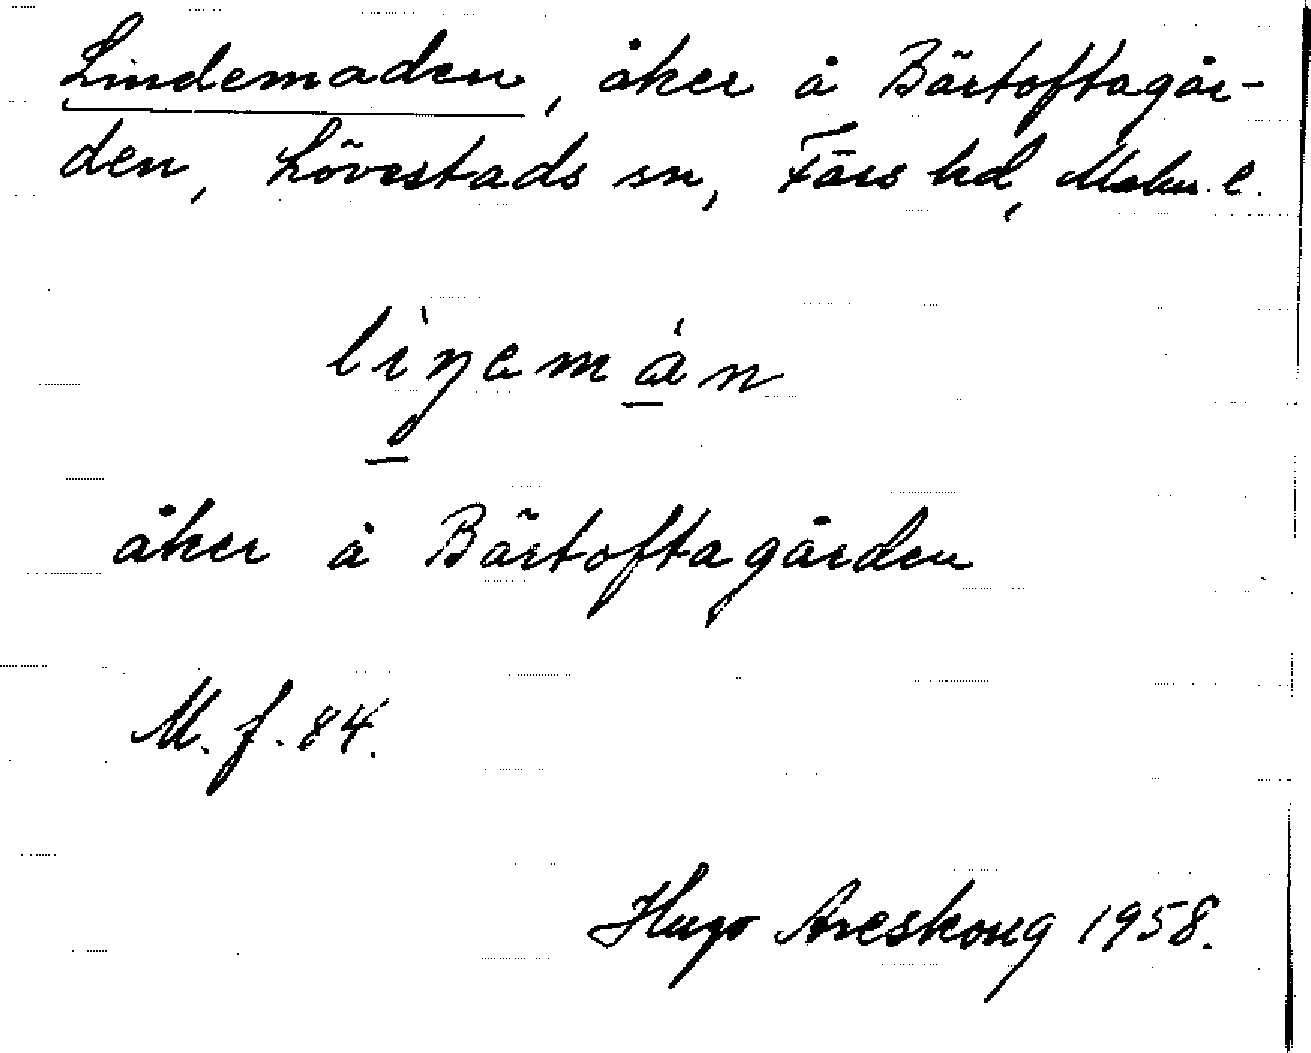 Lindemaden, åker å Bärtoftagår-
den, Lövestads sn, Färs hd, Malm. l.
åker å Bärtoftagården
M. f. 84.
Hugo Areskoug 1958.